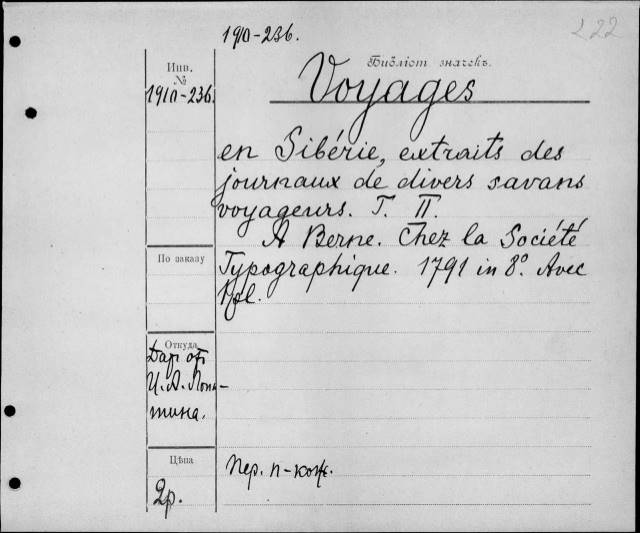 1910-236.
222
Инв.
№
1910-236.
Библіот. значекъ.
Voyages
en Sibérie, extraits des
journaux de divers savans
voyageurs. T. II.
A Berne. Chez la Société
Typographique. 1791 in 8°. Avec
1 pl.
По заказу
Откуда
Даръ отъ
И. А. Лопа-
тина.
Цѣна
2р.
Пер. п-кож.